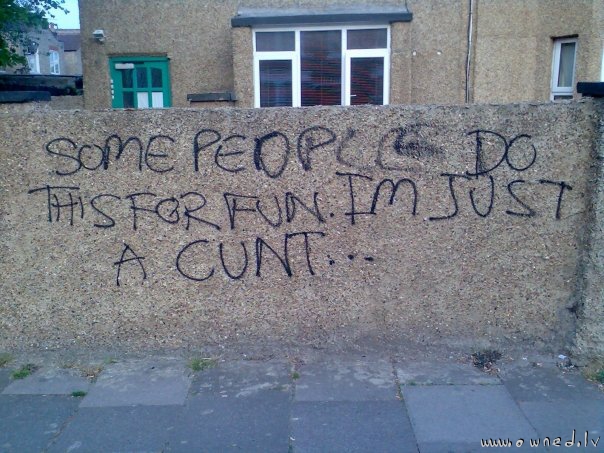 SOME PEOPLE DO
THIS FOR FUN. I'M JUST
A CUNT...
www.owned.lv